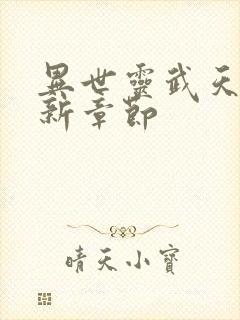 異世靈武天
新章節
晴天小寶